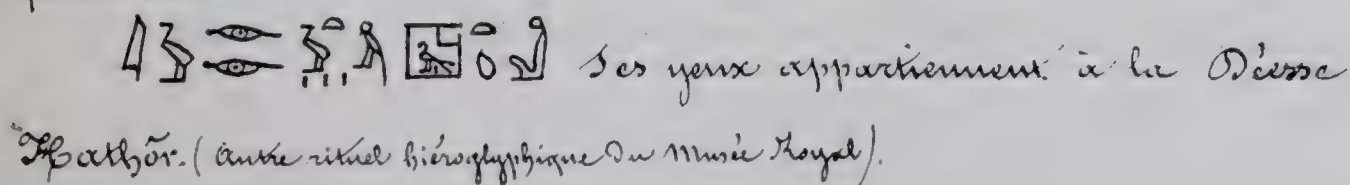 Ses yeux appartiennent à la Déesse
Hathôr. (autre rituel hiéroglyphique Du Musée Royal).